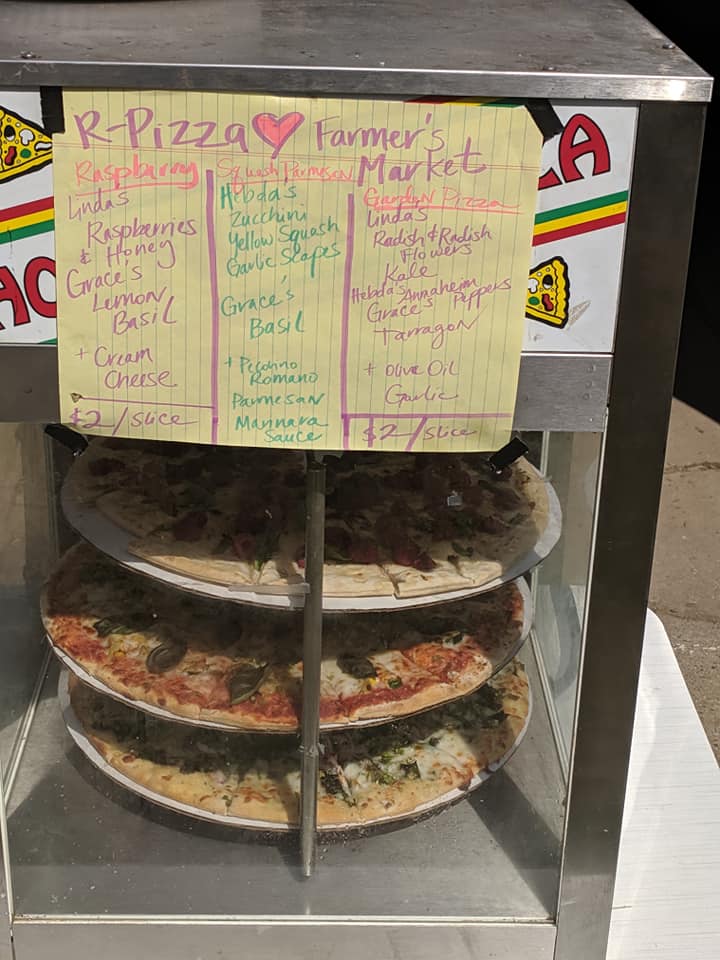 R-Pizza Farmer's
Market
Raspbarry
Linda's
Raspberries
& Honey
Grace's
Lemon
Basil
+ Cream
Cheese
$2/slice
Squash Parmesan
Hebda's
Zucchini
Yellow Squash
Garlic Scapes
Grace's
Basil
+ Pecorino
Romano
Parmesan
Marinara
Sauce
Garden Pizza
Linda's
Radish & Radish
Flowers
Kale
Hebda's Annaheim
Grace's Peppers
Tarragon
+ Olive Oil
Garlic
$2/slice